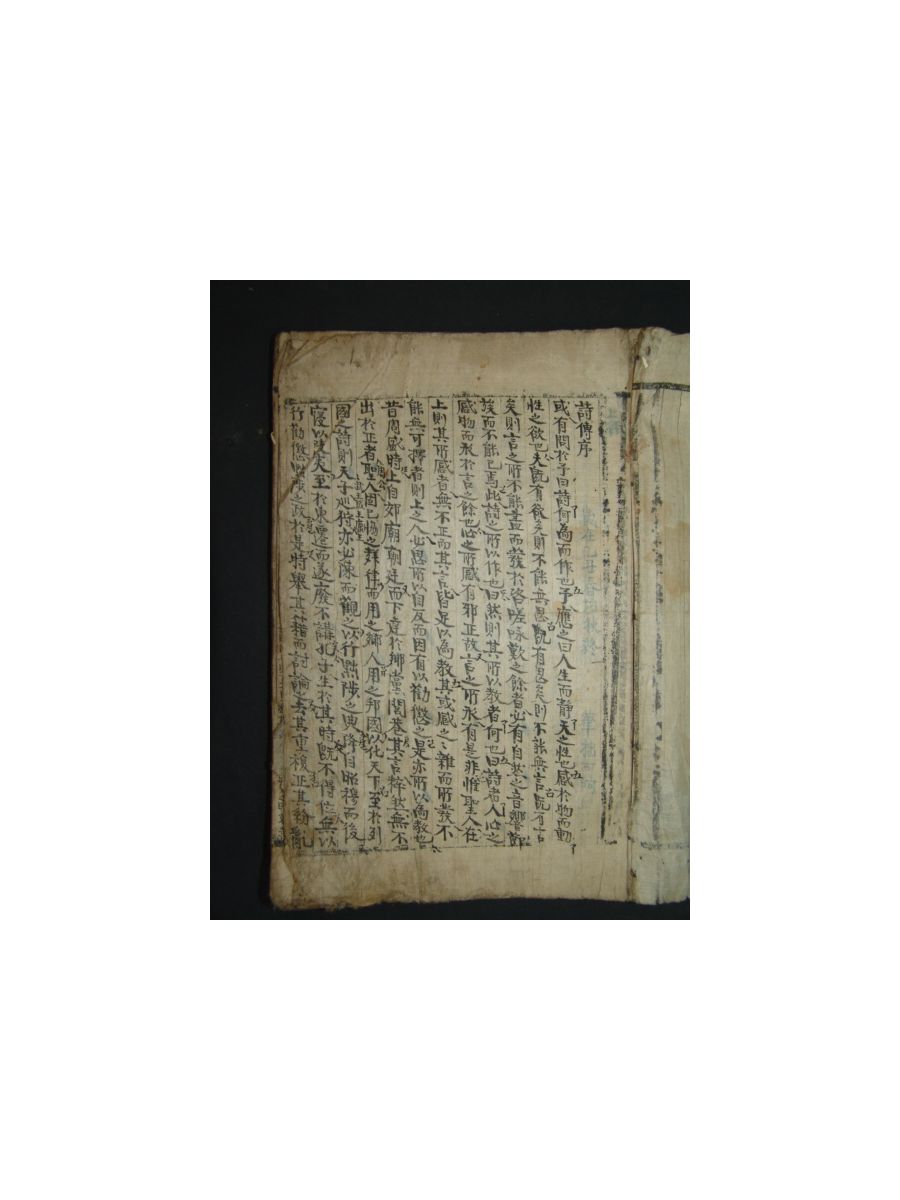 詩傳序
或有問於予曰詩何為而作也予應之曰人生而靜天之性也感於物而動
性之欲也夫旣有欲矣則不能無思旣有思矣則不能無言旣有言
矣則言之所不能盡而發於咨嗟咏歎之餘者必有自然之音響節
族而不能已焉此詩之所以作也曰然則其所以教者何也曰詩者人心之
感物而形於言之餘也心之所感有邪正故言之所形有是非惟聖人在
上則其所感者無不正而其言皆足以為教其或感之之雜而所發不
能無可擇者則上之人必思所以自反而因有以勸懲之是亦所以為教也
昔周盛時上自郊廟朝廷而下達於鄉黨閭巷其言粹然無不
出於正者聖人固已恊之聲律而用之鄉人用之邦國以化天下至於列
國之詩則天子巡狩亦必陳而觀之以行黜陟之典降自昭穆而後
寖以陵夷至於東遷而遂廢不講孔子生於其時旣不得位無以
行勸懲黜陟之政於是特舉其籍而討論之去其重複正其紛亂